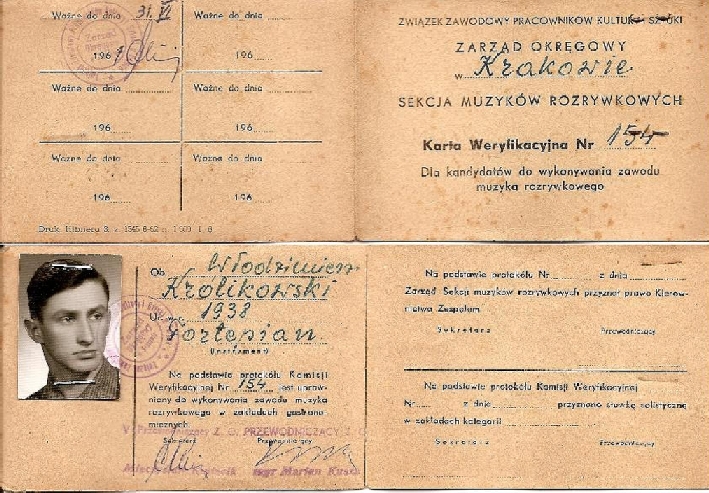 Ważne do dnia 31. VI
196
Ważne do dnia
196
Ważne do dnia
196
Ważne do dnia
196
Ważne do dnia
196
Ważne do dnia
196
ZWIĄZEK ZAWODOWY PRACOWNIKÓW KULTURY I SZTUKI
ZARZĄD OKRĘGOWY
w Krakowie
SEKCJA MUZYKÓW ROZRYWKOWYCH
Karta Weryfikacyjna Nr 154
Dla kandydatów do wykonywania zawodu
muzyka rozrywkowego
Ob. Włodzimierz
Królikowski
Ur. w r. 1938
Fortepian
(Instrument)
Na podstawie protokółu Komisji
Weryfikacyjnej Nr 154 jest upraw-
niony do wykonywania zawodu muzyka
rozrywkowego w zakładach gastrono-
micznych.
PRZEWODNICZĄCY
Sekretarz Przewodniczący
mgr Marian
Na podstawie protokółu Nr z dnia
Zarząd Sekcji muzyków rozrywkowych przyznał prawo Kierow-
nictwa Zespołem
Sekretarz Przewodniczący
Na podstawie protokółu Komisji Weryfikacyjnej
Nr z dnia przyznano stawkę solistyczną
w zakładach kategorii
Sekretarz Przewodniczący